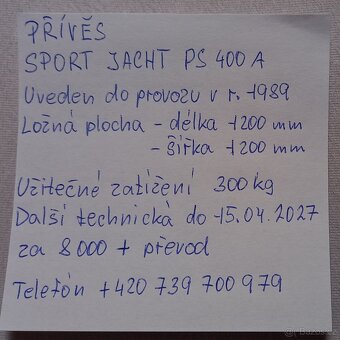 PŘÍVĚS
SPORT JACHT PS 400 A
Uveden do provozu v r. 1989
Ložná plocha - délka 1200 mm
- šířka 1200 mm
Užitečné zatížení 300 kg
Další technická do 15.04.2027
za 8 000 + převod
Telefón +420 739 700 979